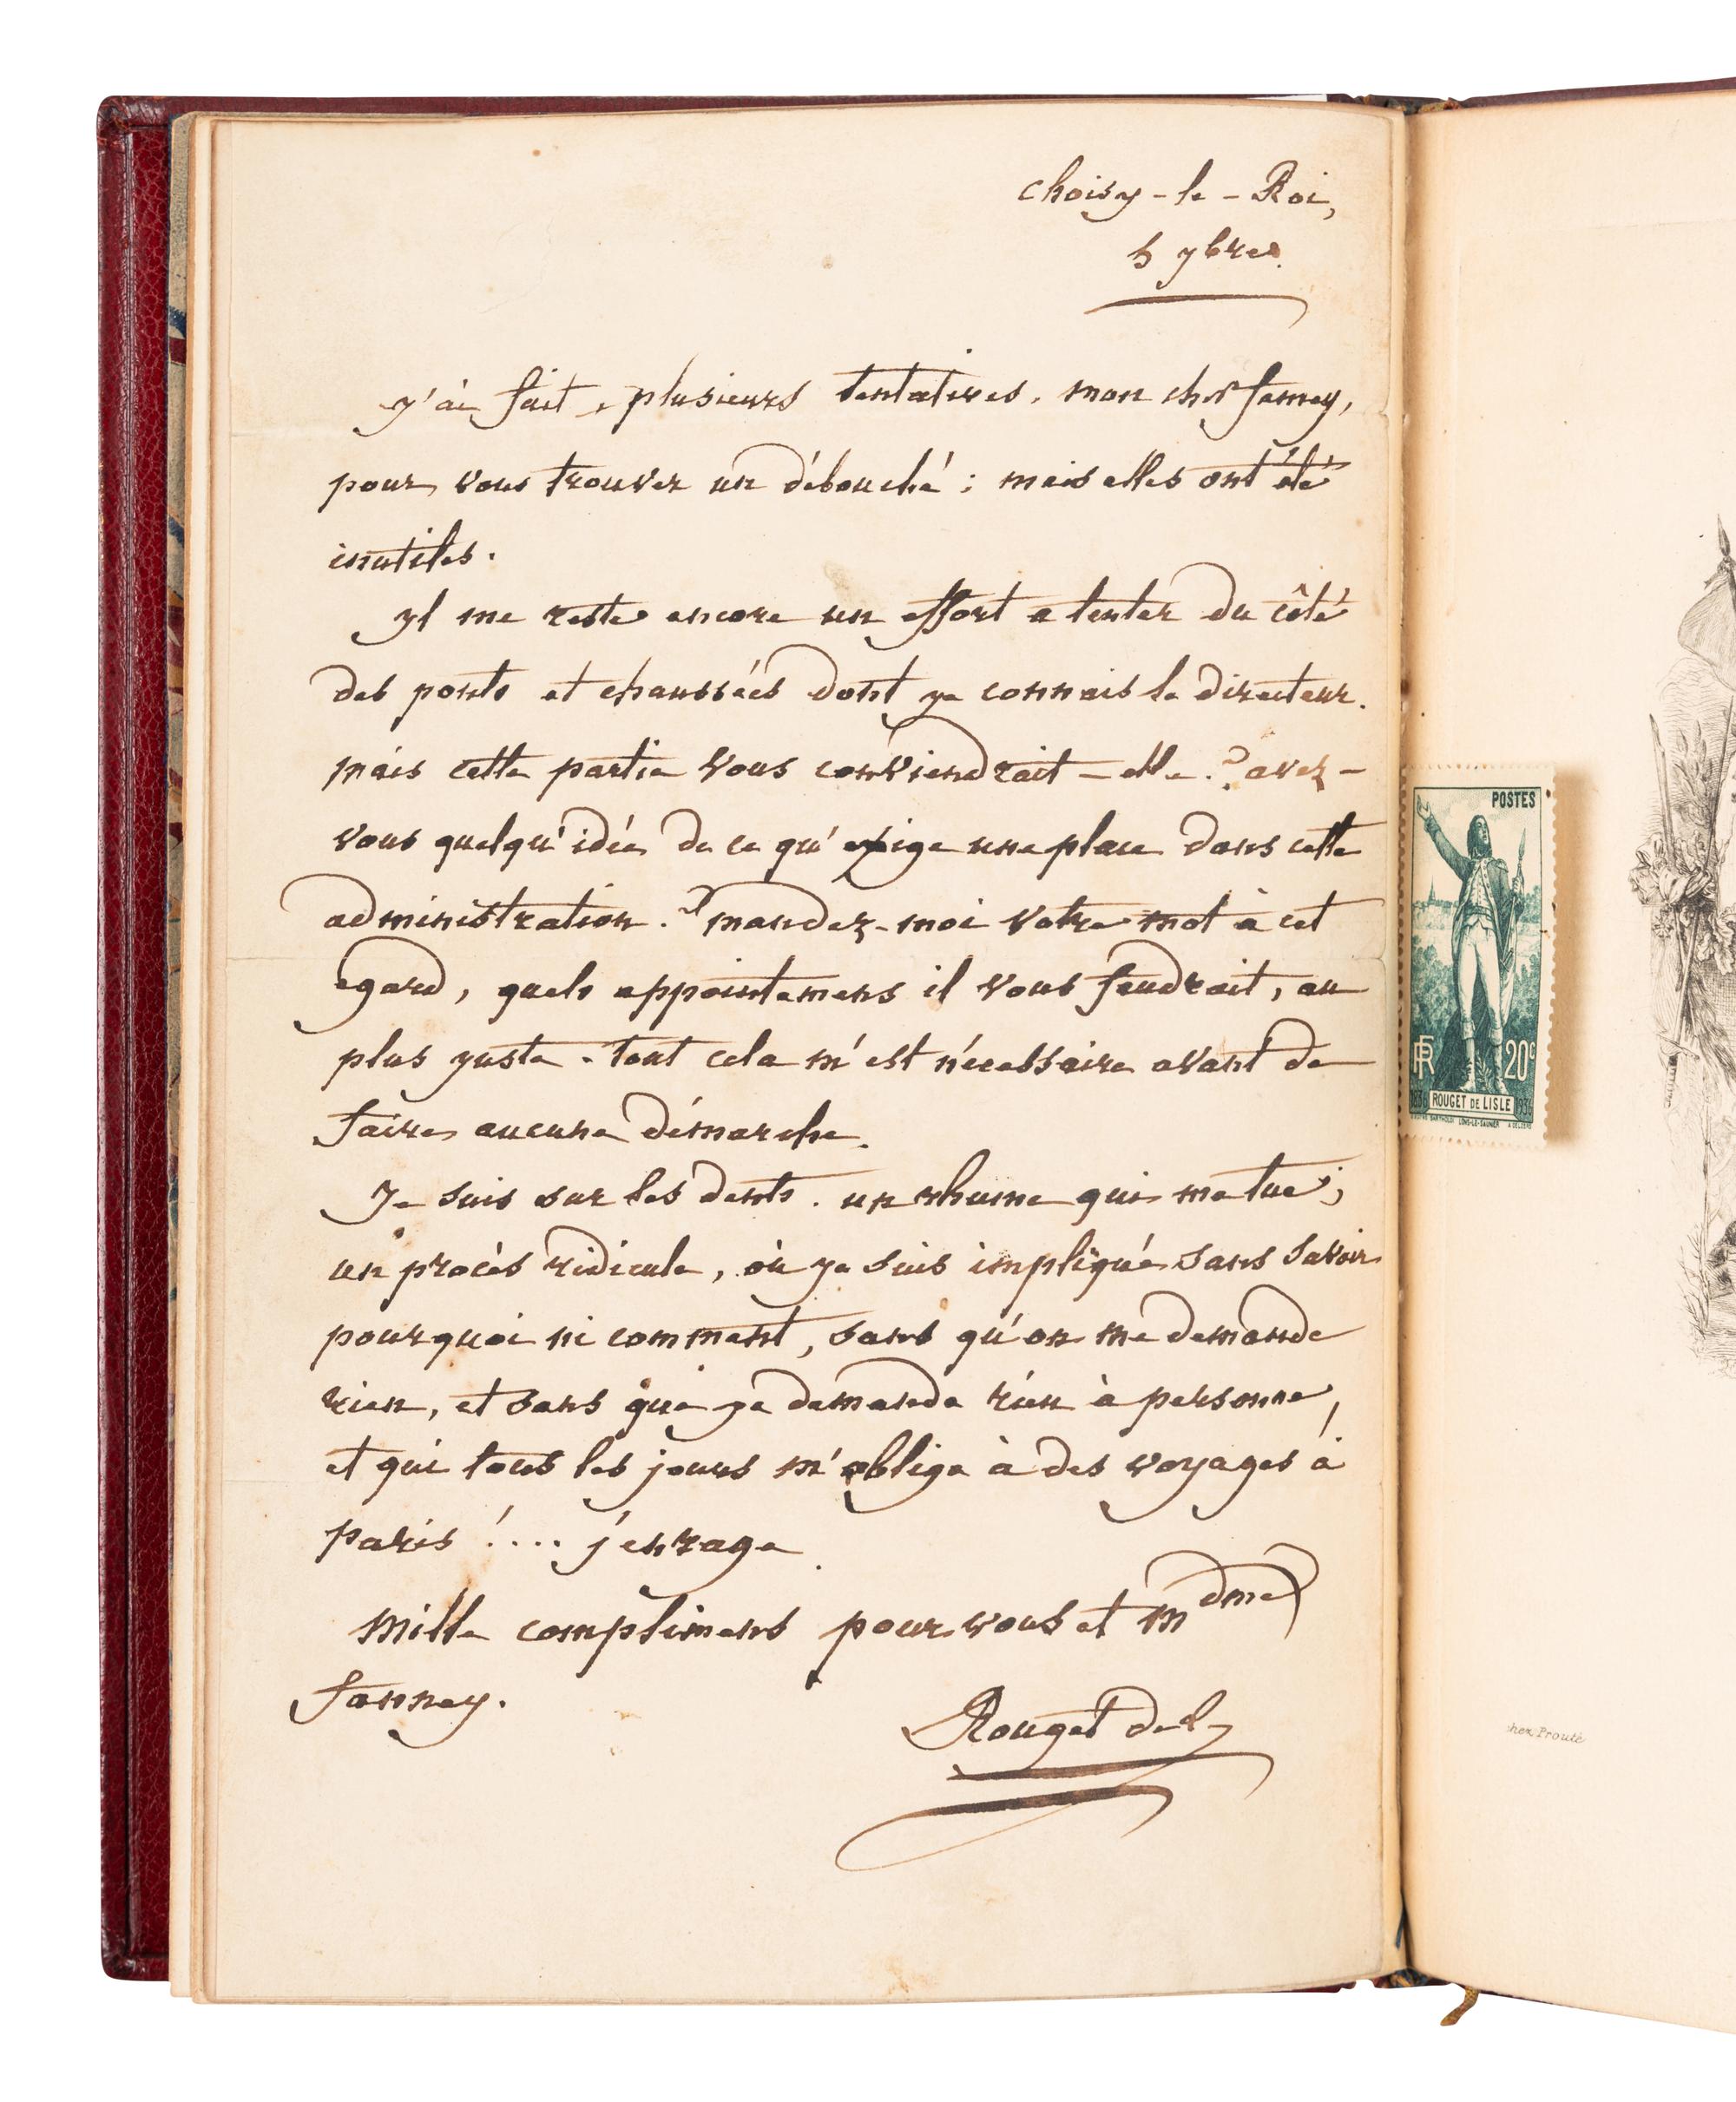 choisy-le-Roi,
5 9bre.
j'ai fait, plusieurs tentatives, mon cher fanney,
pour vous trouver un débouché; mais elles ont été
inutiles.
yl me reste encore un effort a tenter du côté
des ponts et chaussées dont je connais le directeur.
mais cette partie vous conviendrait-elle? avez-
vous quelqu'idée de ce qu'exige une place dans cette
administration? mandez-moi votre mot à cet
egard, quels appointemens il vous faudrait, au
plus juste. tout cela m'est nécessaire avant de
faire aucune démarche.
Je suis sur les dents. un rhume qui me tue;
un procès ridicule, où je suis impliqué sans savoir
pourquoi ni comment, sans qu'on me demande
rien, et sans que je demande rien à personne,
et qui tous les jours m'oblige à des voyages à
paris!.... j'enrage.
Mille complimens pour vous et mdme
fanney.
Rouget del
POSTES
RF 20c
1836 ROUGET DE LISLE 1936
LONS-LE-SAUNIER
chez Prouté